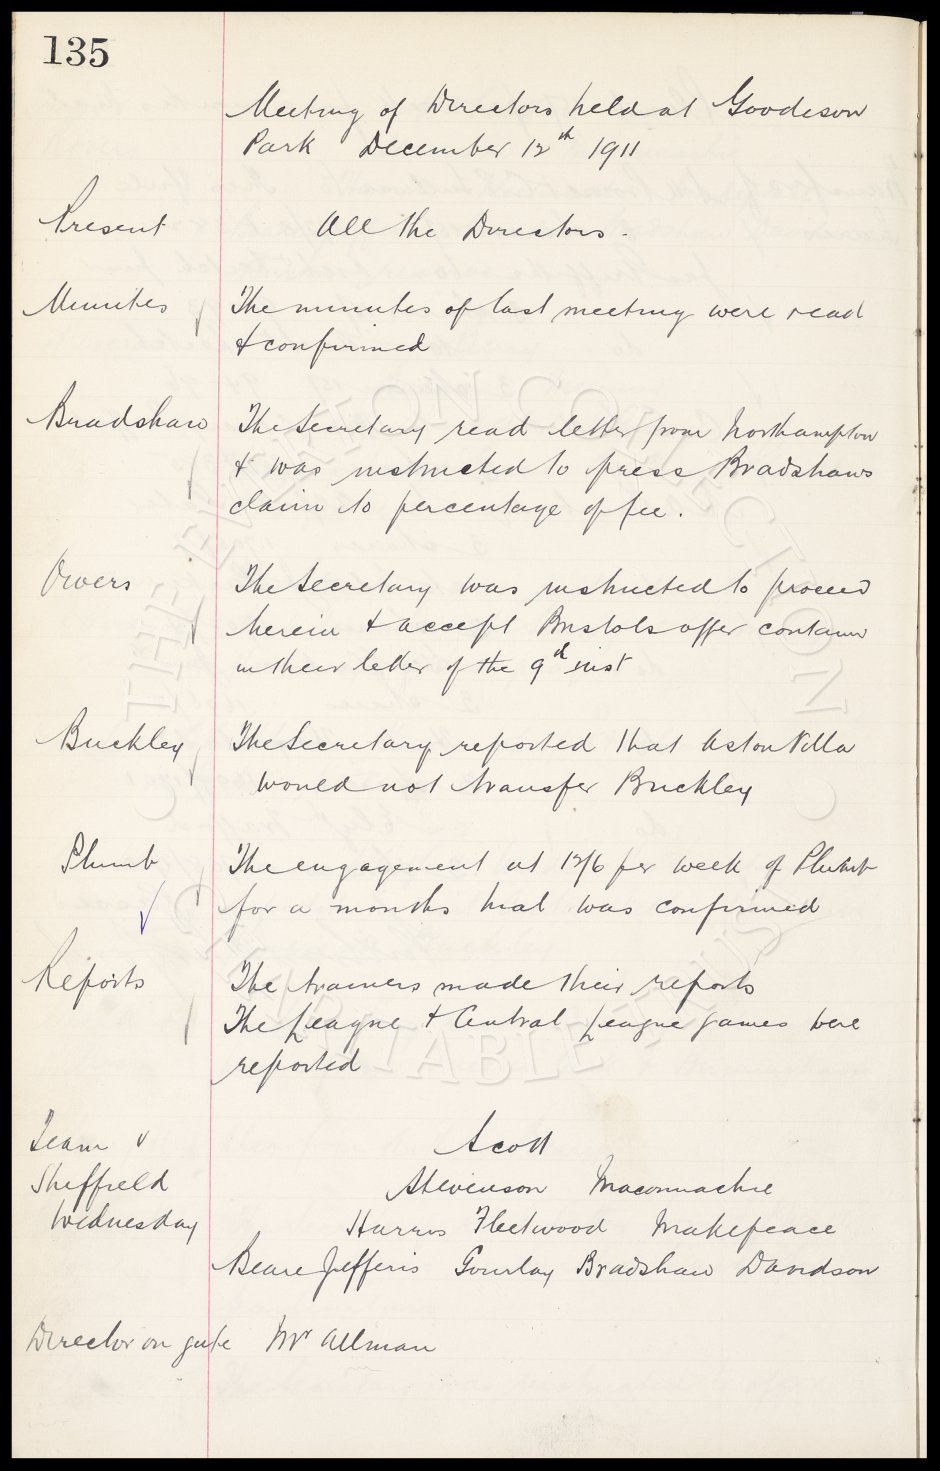 135
Meeting of Directors held at Goodison
Park December 12th 1911
Present All the Directors.
Minutes The minutes of last meeting were read
& confirmed
Bradshaw The Secretary read letter from Northampton
& was instructed to press Bradshaws
claim to percentage of fee.
Owers The Secretary was instructed to proceed
herein & accept Bristols offer contained
in their letter of the 9th inst
Buckley The Secretary reported that Aston Villa
would not transfer Buckley
Plumb The engagement at 12/6 per week of Plumb
for a months trial was confirmed
Reports The trainers made their reports
The League & Central League games were
reported
Team v Scott
Sheffield Stevenson Maconnachie
Wednesday Harris Fleetwood Makepeace
Beare Jefferis Gourlay Bradshaw Davidson
Director on gate Mr Allman
THE EVERTON COLLECTION
CHARITABLE TRUST